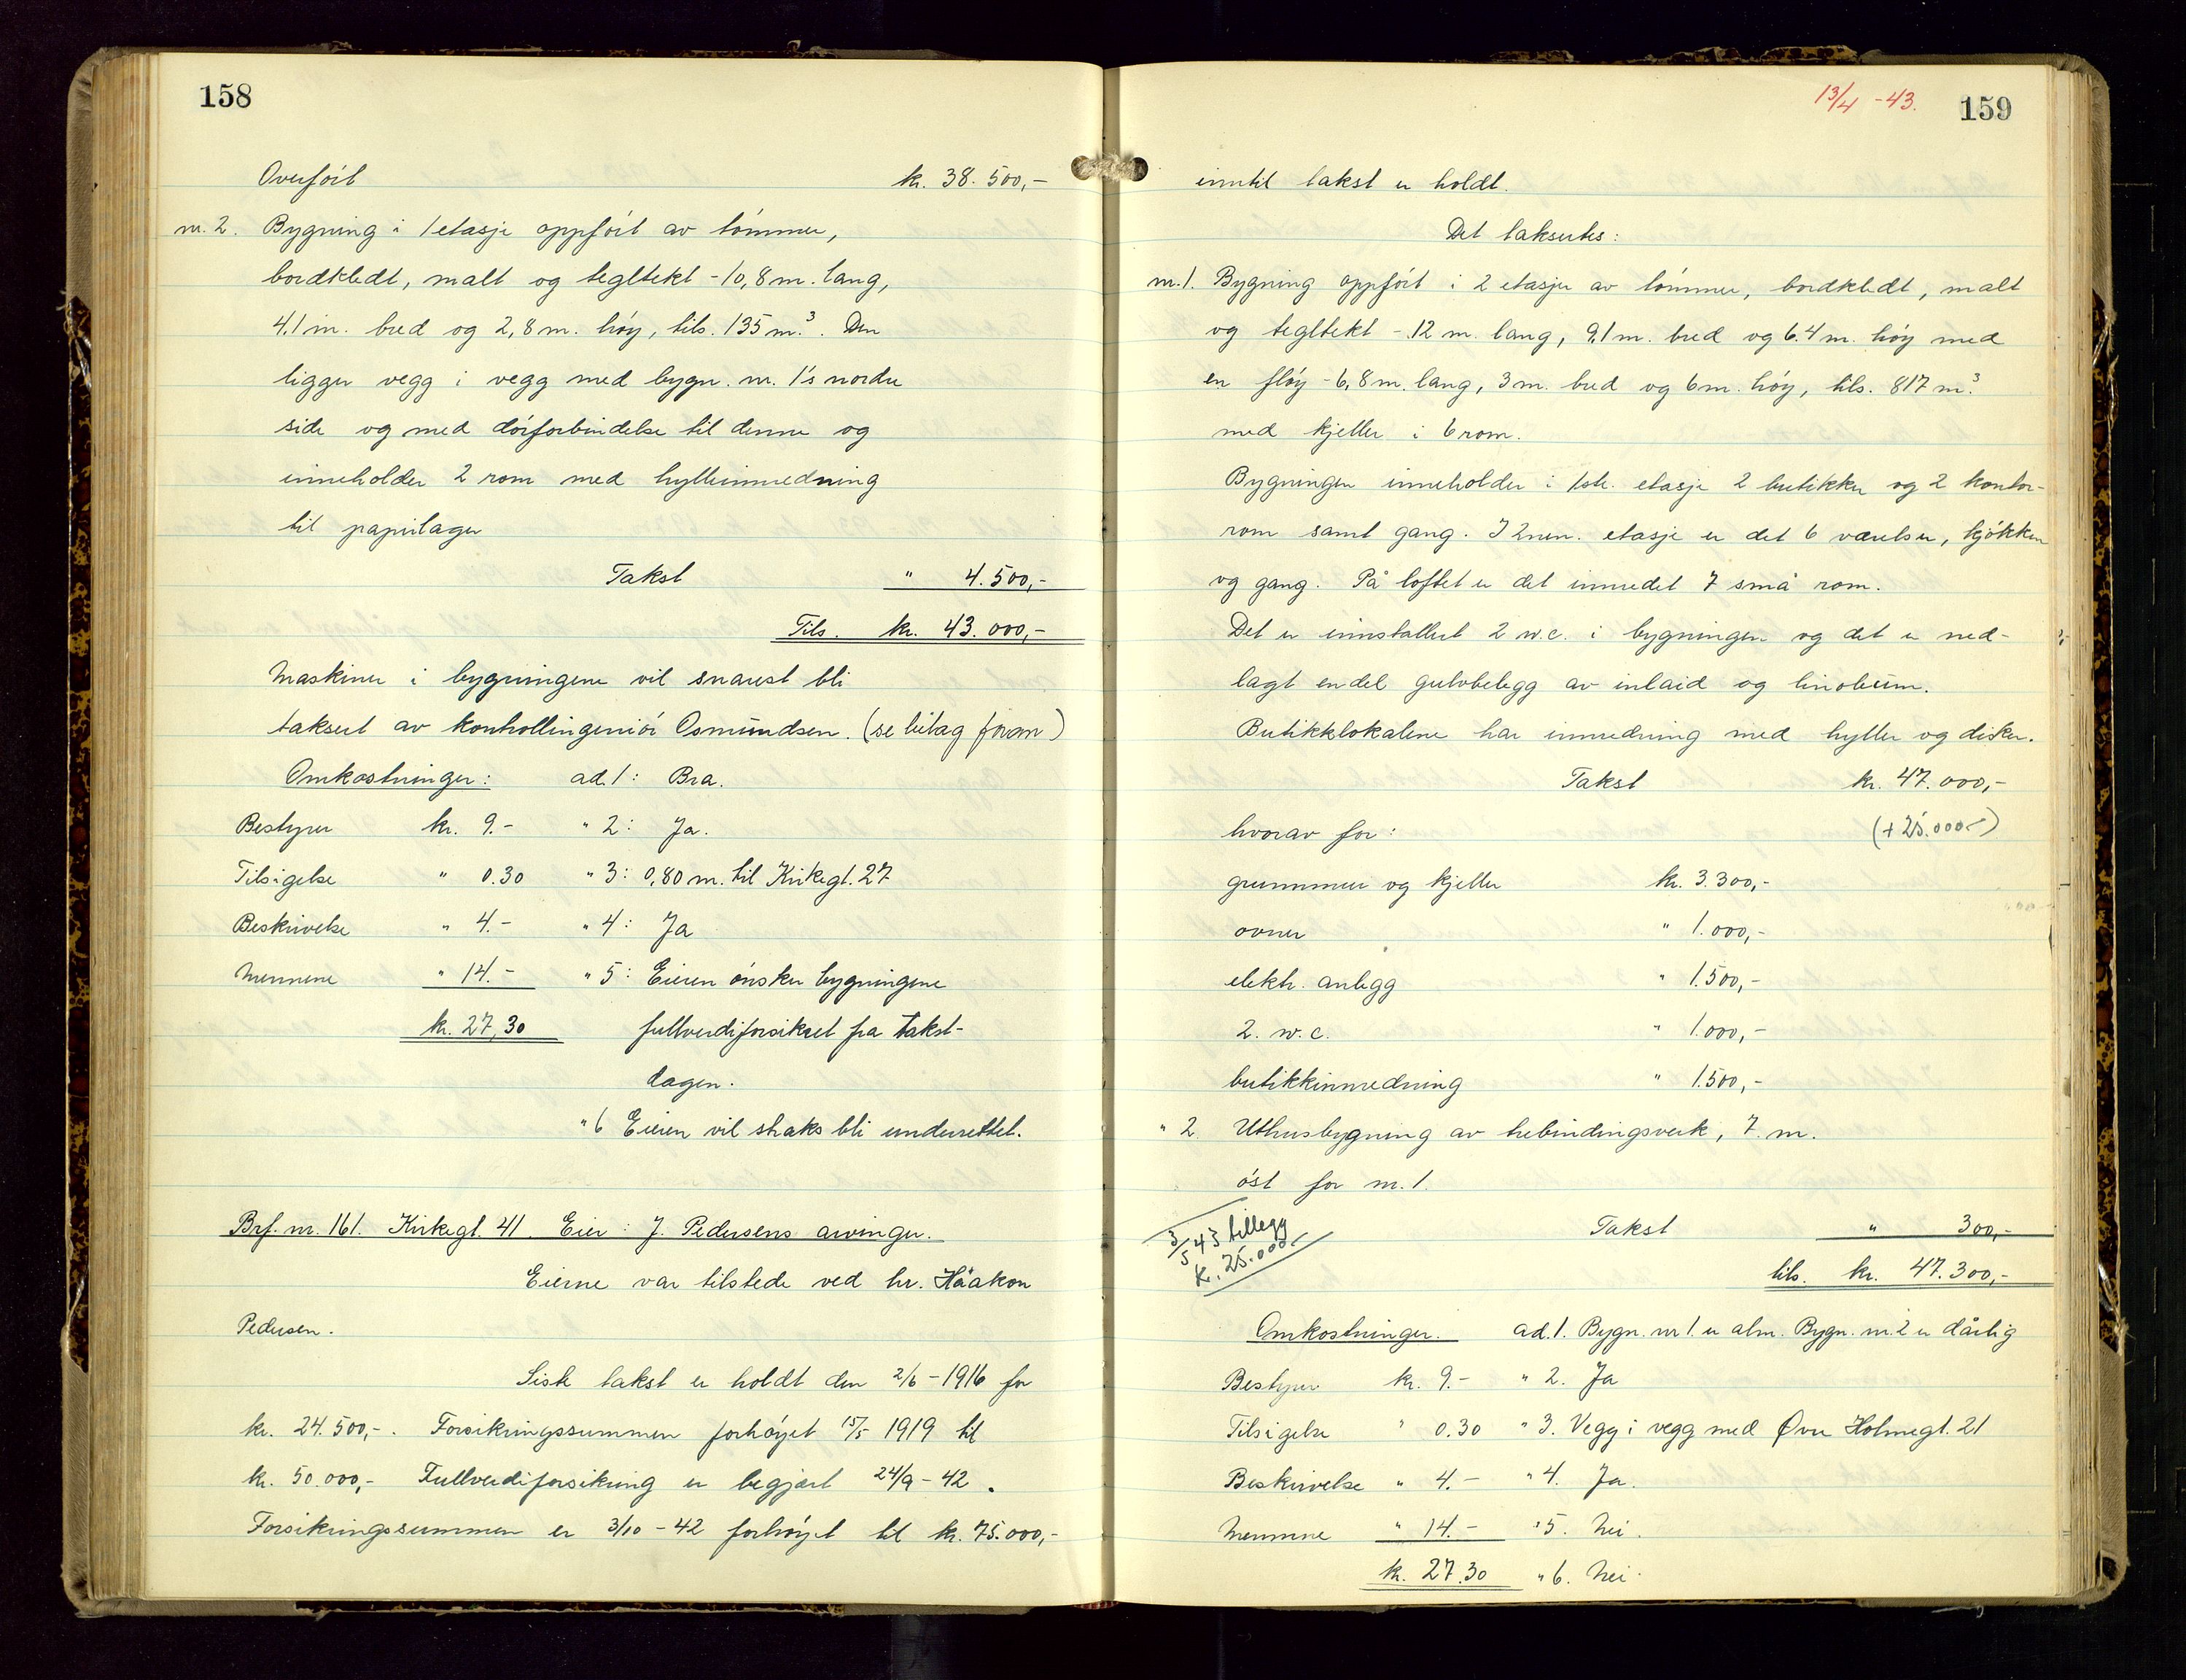 158
Overført kr. 38.500,-
nr. 2. Bygning i 1 etasje oppført av tømmer,
bordkledt, malt og tegltekt - 10,8 m. lang,
4.1 m. bred og 2,8 m. høy, tils. 135 m.³. Den
ligger vegg i vegg med bygn. nr. 1's nordre
side og med dørforbindelse til denne og
inneholder 2 rom med hylleinnredning
til papirlager
Takst " 4.500,-
Tils. kr. 43.000,-
Maskiner i bygningene vil snarest bli
taksert av kontrollingeniør Osmundsen. (se bilag foran)
Omkostninger: ad. 1: Bra.
Bestyrer kr. 9.- " 2: Ja.
Tilsigelse " 0.30 " 3: 0,80 m. til Kirkegt. 27
Beskrivelse " 4.- " 4: Ja
Mennene " 14.- " 5: Eieren ønsker bygningene
kr. 27,30 fullverdiforsikret fra takst-
dagen.
" 6 Eieren vil straks bli underrettet.
Brf. nr. 161. Kirkegt. 41. Eier: J. Pedersens arvinger.
Eierne var tilstede ved hr. Håakon
Pedersen.
Siste takst er holdt den 2/6 - 1916 for
kr. 24.500,-. Forsikringssummen forhøyet 15/5 1919 til
kr. 50.000,- Fullverdiforsikring er begjært 24/9 - 42.
Forsikringssummen er 3/10 - 42 forhøyet til kr. 75.000,-
13/4 - 43. 159
inntil takst er holdt.
Det takseres:
nr. 1. Bygning oppført i 2 etasjer av tømmer, bordkledt, malt
og tegltekt - 12 m. lang, 9,1 m. bred og 6.4 m. høy med
en fløy - 6,8 m. lang, 3 m. bred og 6 m. høy, tils. 817 m.³
med kjeller i 6 rom.
Bygningen inneholder i 1ste. etasje 2 butikker og 2 kontor-
rom samt gang. I 2nen. etasje er det 6 værelser, kjøkken
og gang. På loftet er det innredet 7 små rom.
Det er innstallert 2 w.c. i bygningen og det er ned-
lagt endel gulvbelegg av inlaid og linoleum.
Butikklokalene har innredning med hyller og disker.
Takst kr. 47.000,-
hvorav for: (+ 25.000-)
grunnmur og kjeller kr. 3.300,-
ovner " 1.000,-
elektr. anlegg " 1.500,-
2. w.c. " 1.000,-
butikkinnredning " 1.500,-
" 2. Uthusbygning av trebindingsverk, 7. m.
øst for nr. 1.
3/5 43 tillegg
kr. 25.000-
Takst " 300,-
tils. kr. 47.300,-
Omkostninger. ad. 1. Bygn. nr 1. er alm. Bygn. nr. 2 er dårlig
Bestyrer kr. 9.- " 2. Ja
Tilsigelse " 0.30 " 3. Vegg i vegg med Øvre Holmegt. 21
Beskrivelse " 4.- " 4. Ja.
Mennene " 14.- " 5. Nei.
kr. 27.30 " 6. Nei.